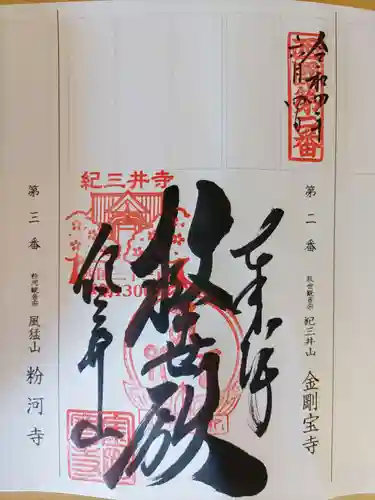 令和四年
六月四日
第二番
第二番 救世観音宗 紀三井山 金剛宝寺
奉拝
紀三井寺
救世殿
紀三井山
第三番 粉河観音宗 風猛山 粉河寺